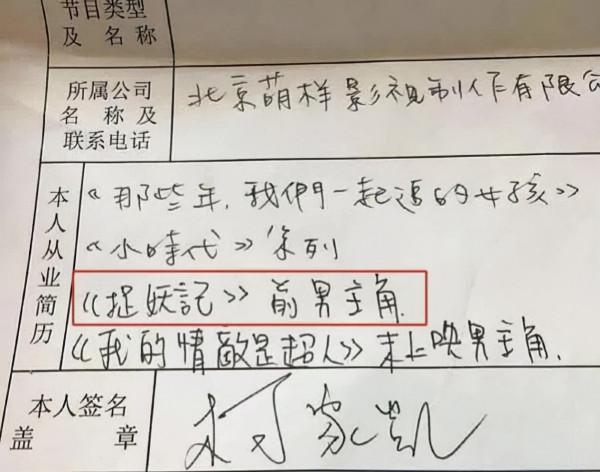 节目类型
及名称
所属公司
名称及
联系电话
北京萌样影视制作有限公
本人从业简历
《那些年,我們一起追的女孩》
《小時代》系列
《捉妖記》前男主角.
《我的情敵是超人》未上映男主角.
本人签名
盖章
柯家凯